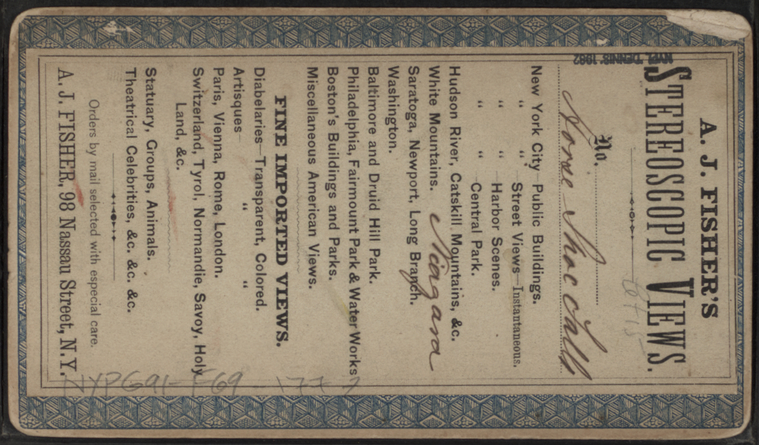 A. J. FISHER'S
STEREOSCOPIC VIEWS.
No.
Horse Shoe Falls
New York City Public Buildings.
" " Street Views—Instantaneous.
" " Harbor Scenes.
" " Central Park.
Hudson River, Catskill Mountains, &c.
White Mountains. Niagara
Saratoga, Newport, Long Branch.
Washington.
Baltimore and Druid Hill Park.
Philadelphia, Fairmount Park & Water Works
Boston's Buildings and Parks.
Miscellaneous American Views.
FINE IMPORTED VIEWS.
Diabelaries—Transparent, Colored.
Artisques— " "
Paris, Vienna, Rome, London.
Switzerland, Tyrol, Normandie, Savoy, Holy
Land, &c.
Statuary, Groups, Animals.
Theatrical Celebrities, &c. &c. &c.
Orders by mail selected with especial care.
A. J. FISHER, 98 Nassau Street, N.Y.
NYPL DENNIS 1982